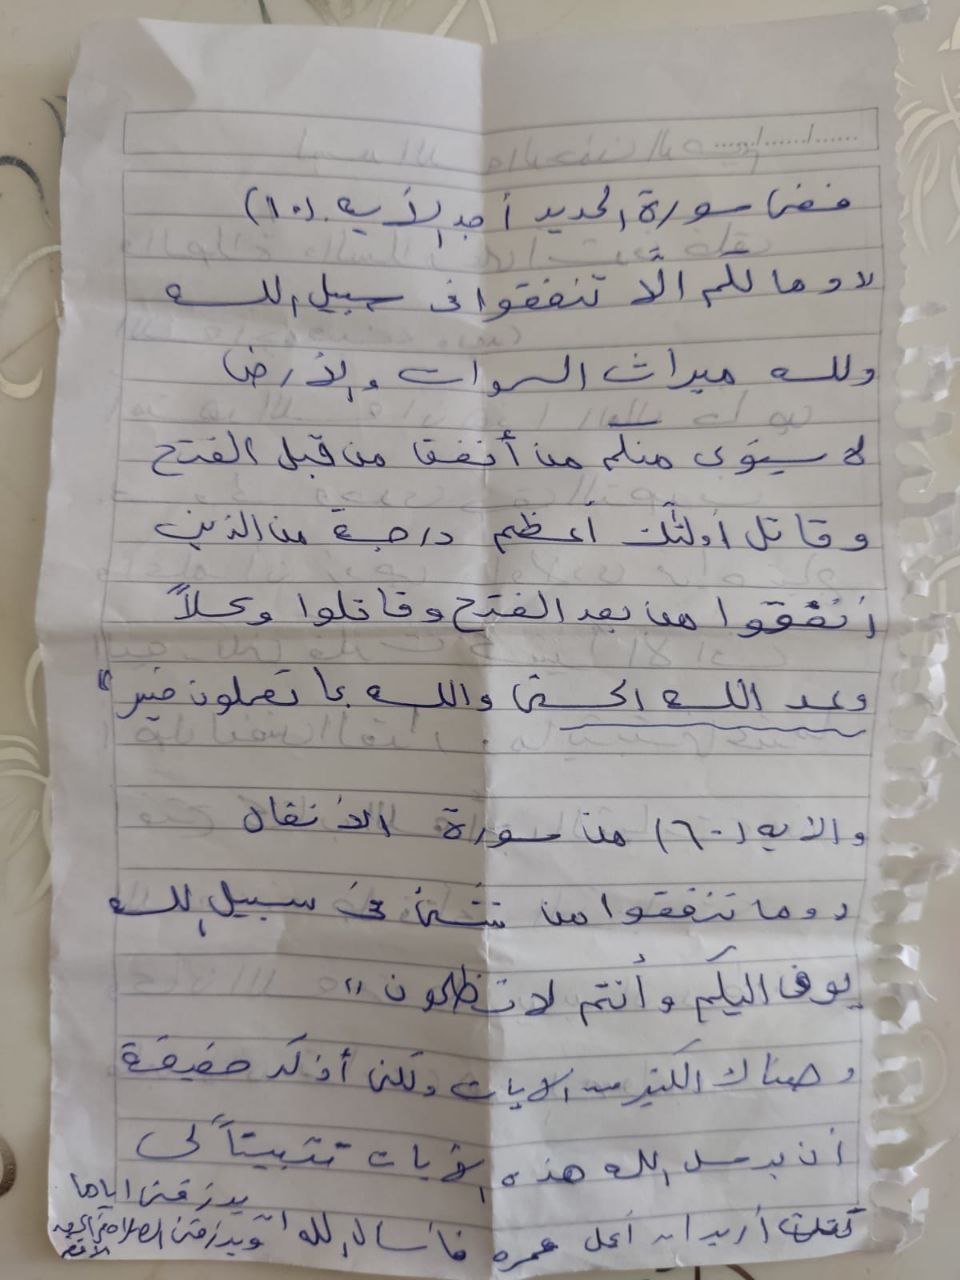 ففى سورة الحديد أجد الآيه (١٠)
"وما لكم ألَّا تنفقوا فى سبيل الله
ولله ميراث السموات والأرض
لا يستوى منكم من أنفق من قبل الفتح
وقاتل أولئك أعظم درجة من الذين
أنفقوا من بعد الفتح وقاتلوا وكلاً
وعد الله الحسنى والله بما تعملون خبير"
والآيه (٦٠) من سورة الأنفال
"وما تنفقوا من شىء فى سبيل الله
يوف اليكم وأنتم لا تظلمون"
وهناك الكثير من الآيات ولكن أذكر حقيقة
أن يرسل الله هذه الآيات تثبيتاً لى
فقلت أريد أن أعمل عمره فأسأل الله أن يرزقنى اياها
ويرزقنى الصلاة فى